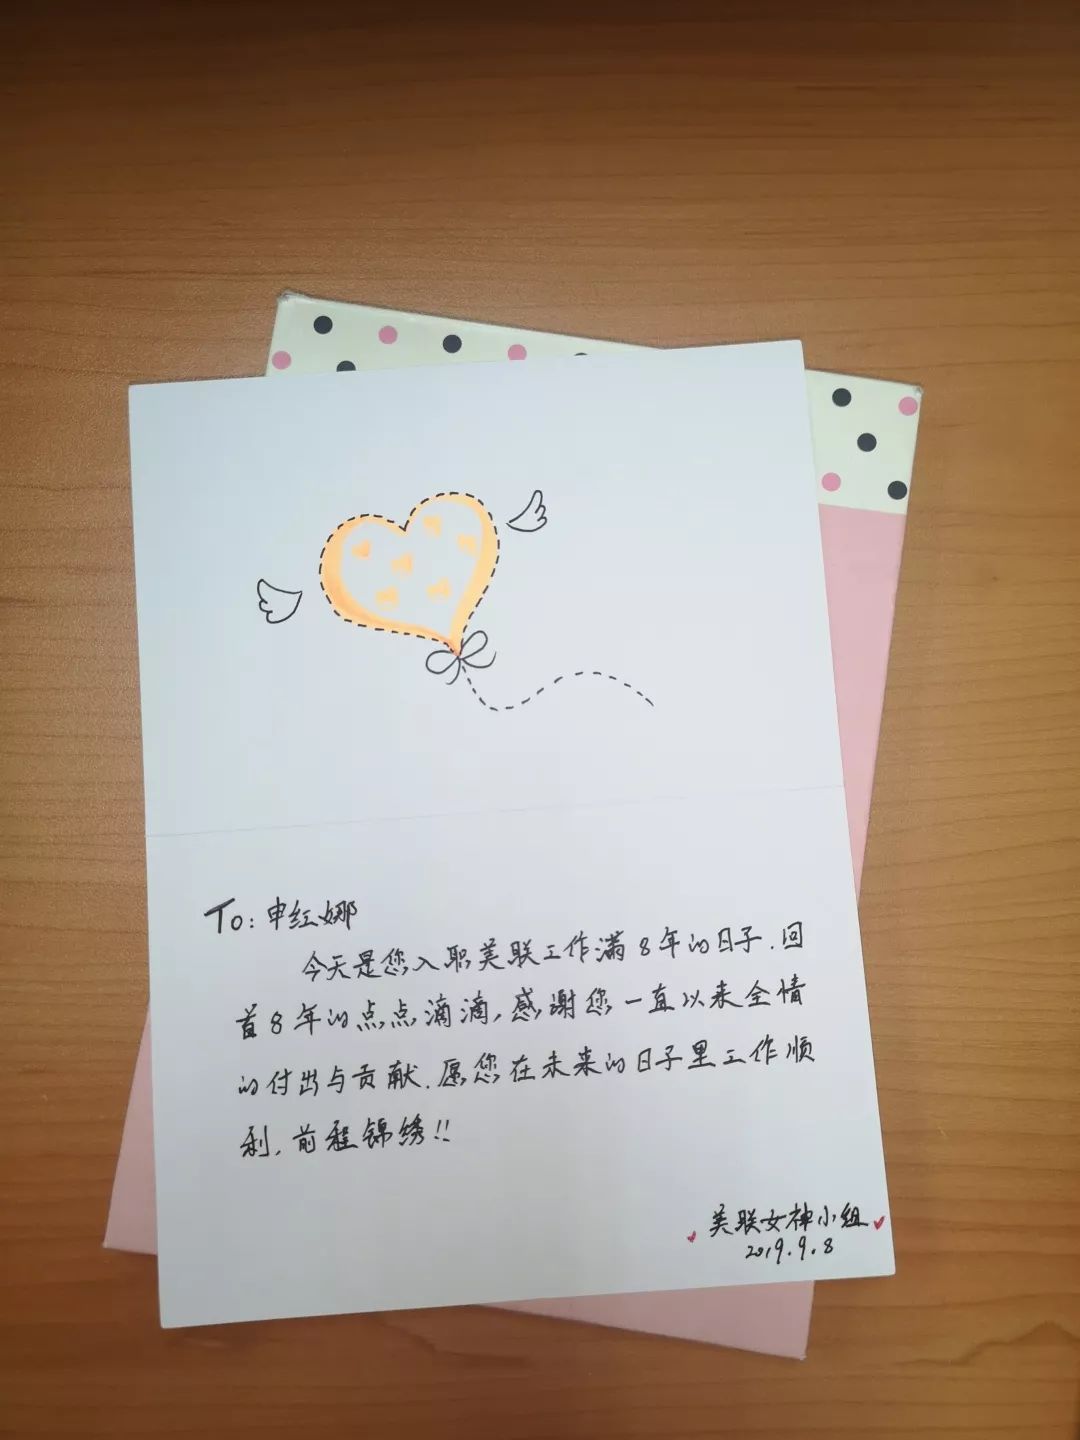 To: 申红娜
今天是您入职美联工作满8年的日子.回
首8年的点点滴滴,感谢您一直以来全情
的付出与贡献.愿您在未来的日子里工作顺
利.前程锦绣!!
美联女神小组
2019.9.8